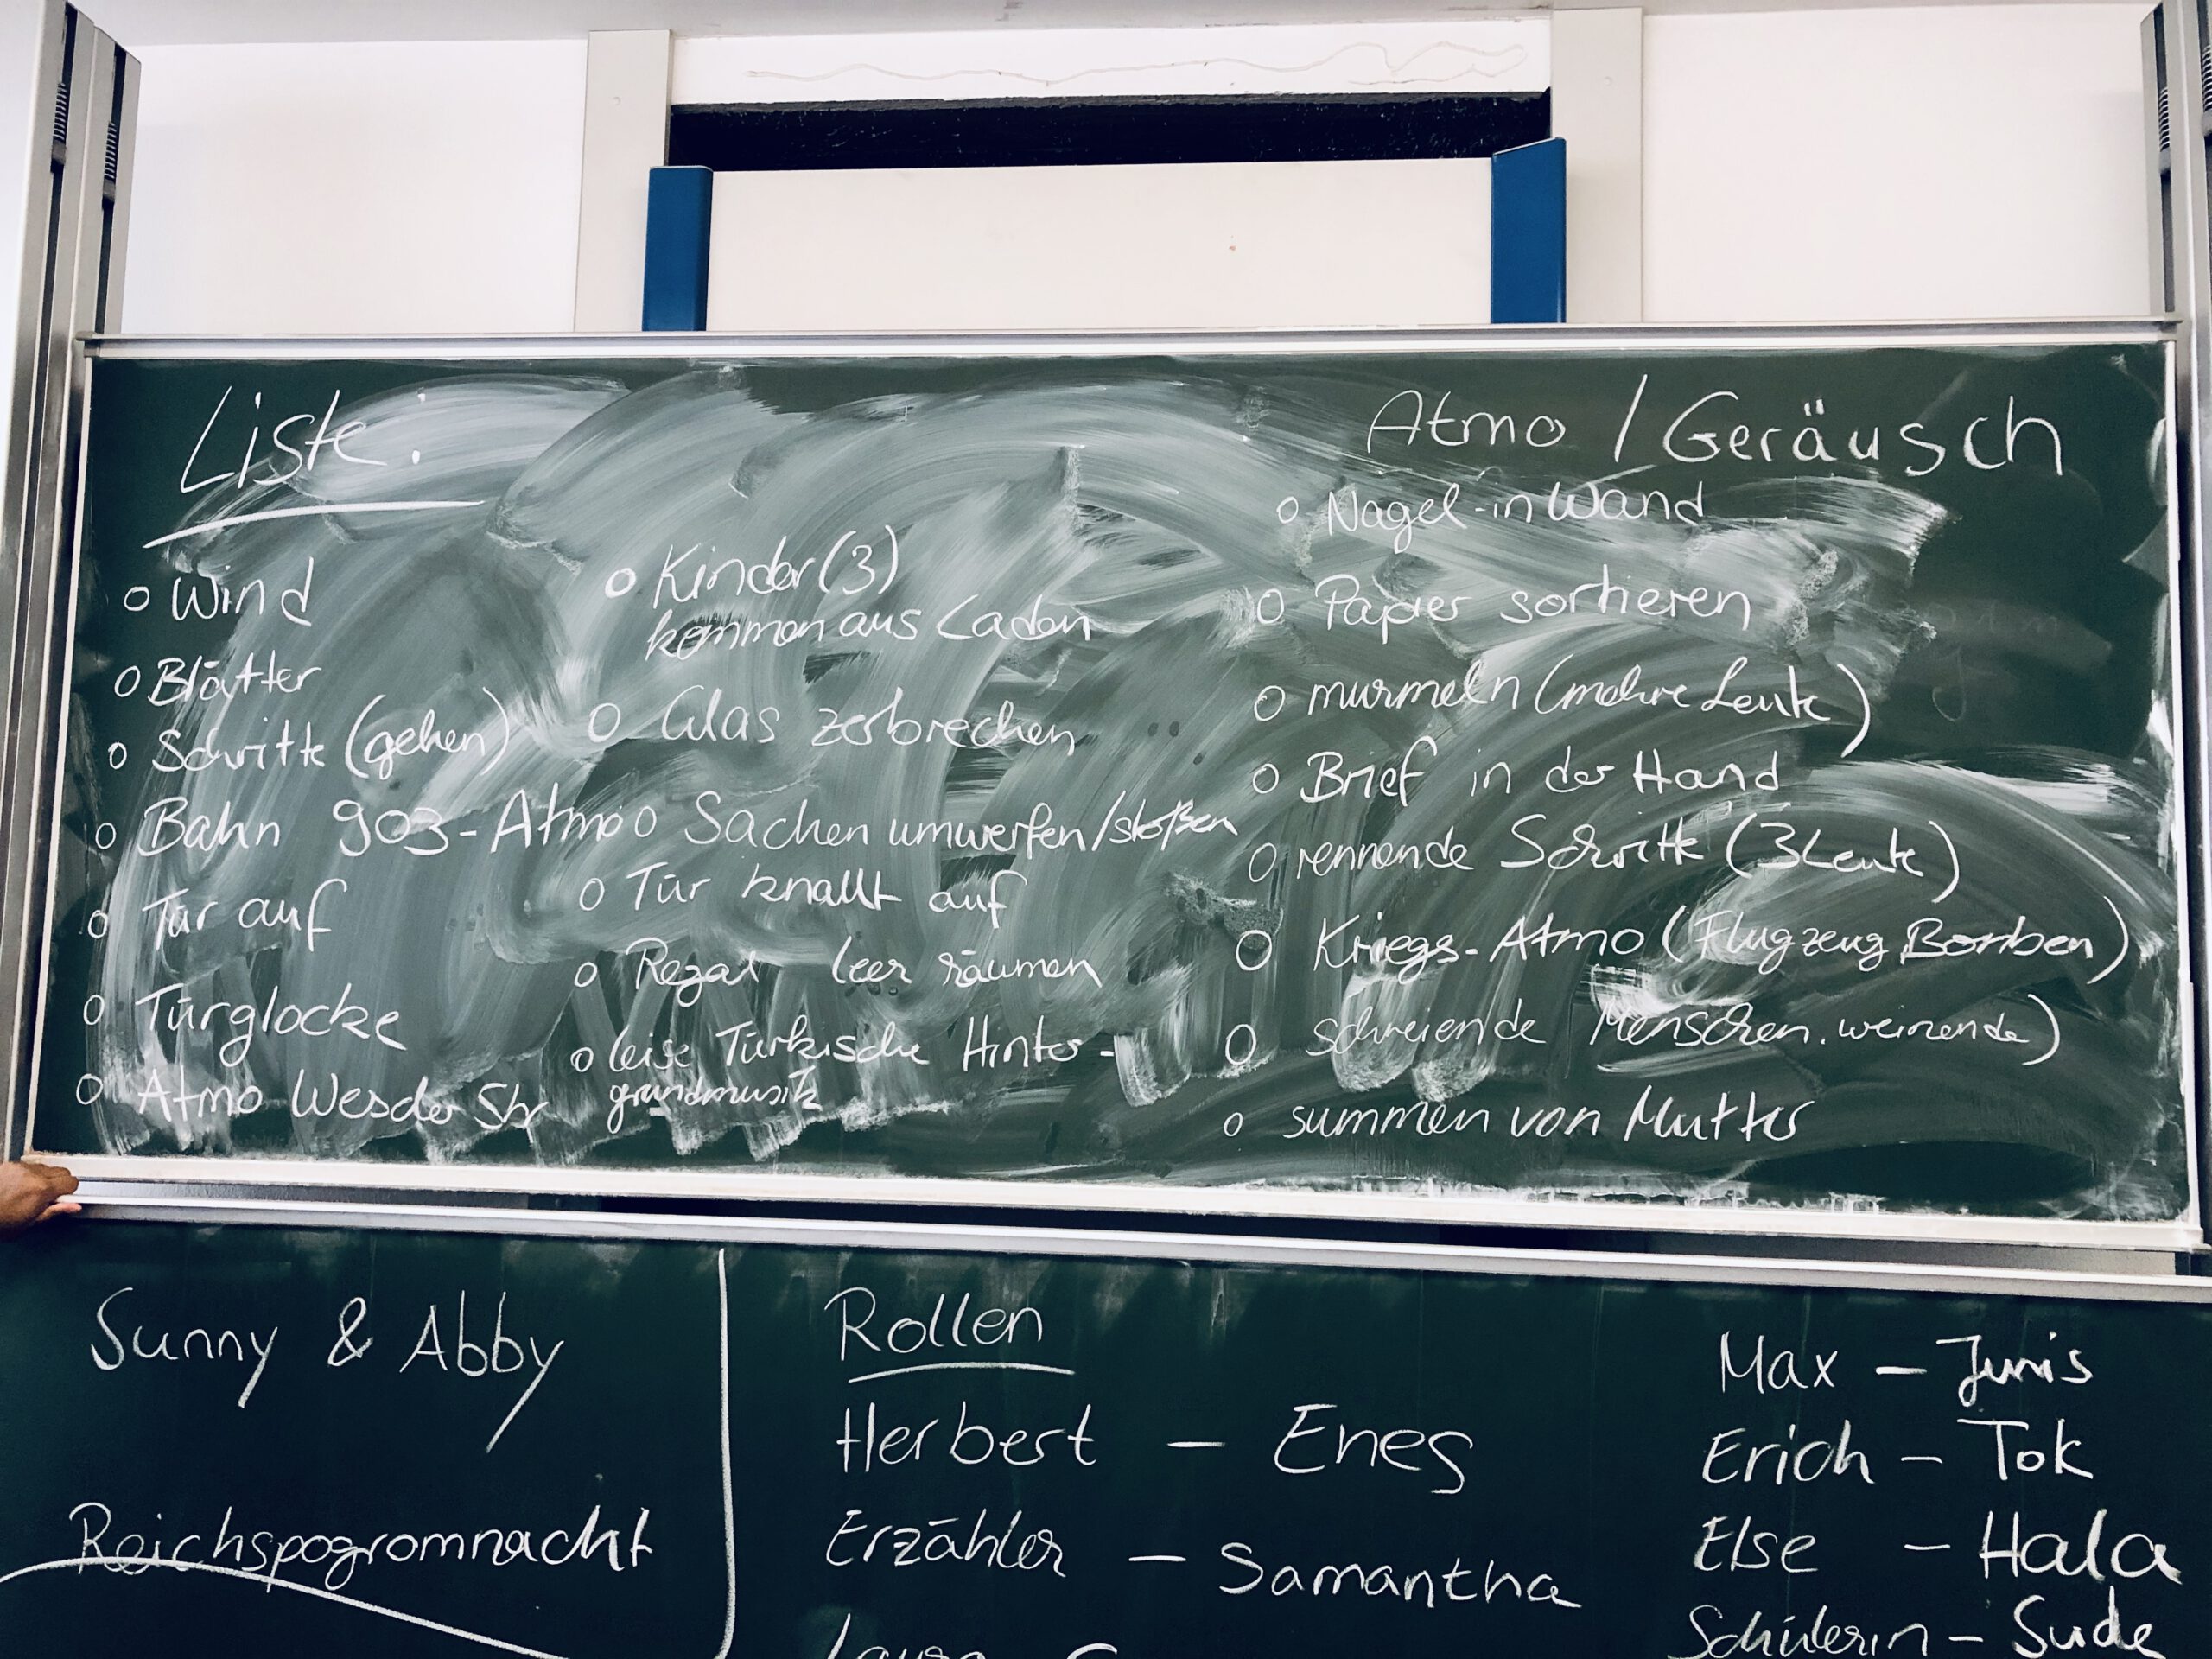 Liste:
Atmo / Geräusch
o Wind
o Blätter
o Schritte (gehen)
o Bahn 903-Atmo
o Tür auf
o Türglocke
o Atmo Weseler Str
o Kinder (3)
kommen aus Laden
o Glas zerbrechen
o Sachen umwerfen/stoßen
o Tür knallt auf
o Regal leer räumen
o leise Türkische Hinter-
grundmusik
o Nagel-in Wand
o Papier sortieren
o murmeln (mehre Leute)
o Brief in der Hand
o rennende Schritte (3 Leute)
o Kriegs-Atmo (Flugzeug, Bomben)
o schreiende Menschen. weinende)
o summen von Mutter
Sunny & Abby
Reichspogromnacht
Rollen
Herbert — Enes
Erzähler — Samantha
Max — Junis
Erich — Tok
Else — Hala
Schülerin — Sude